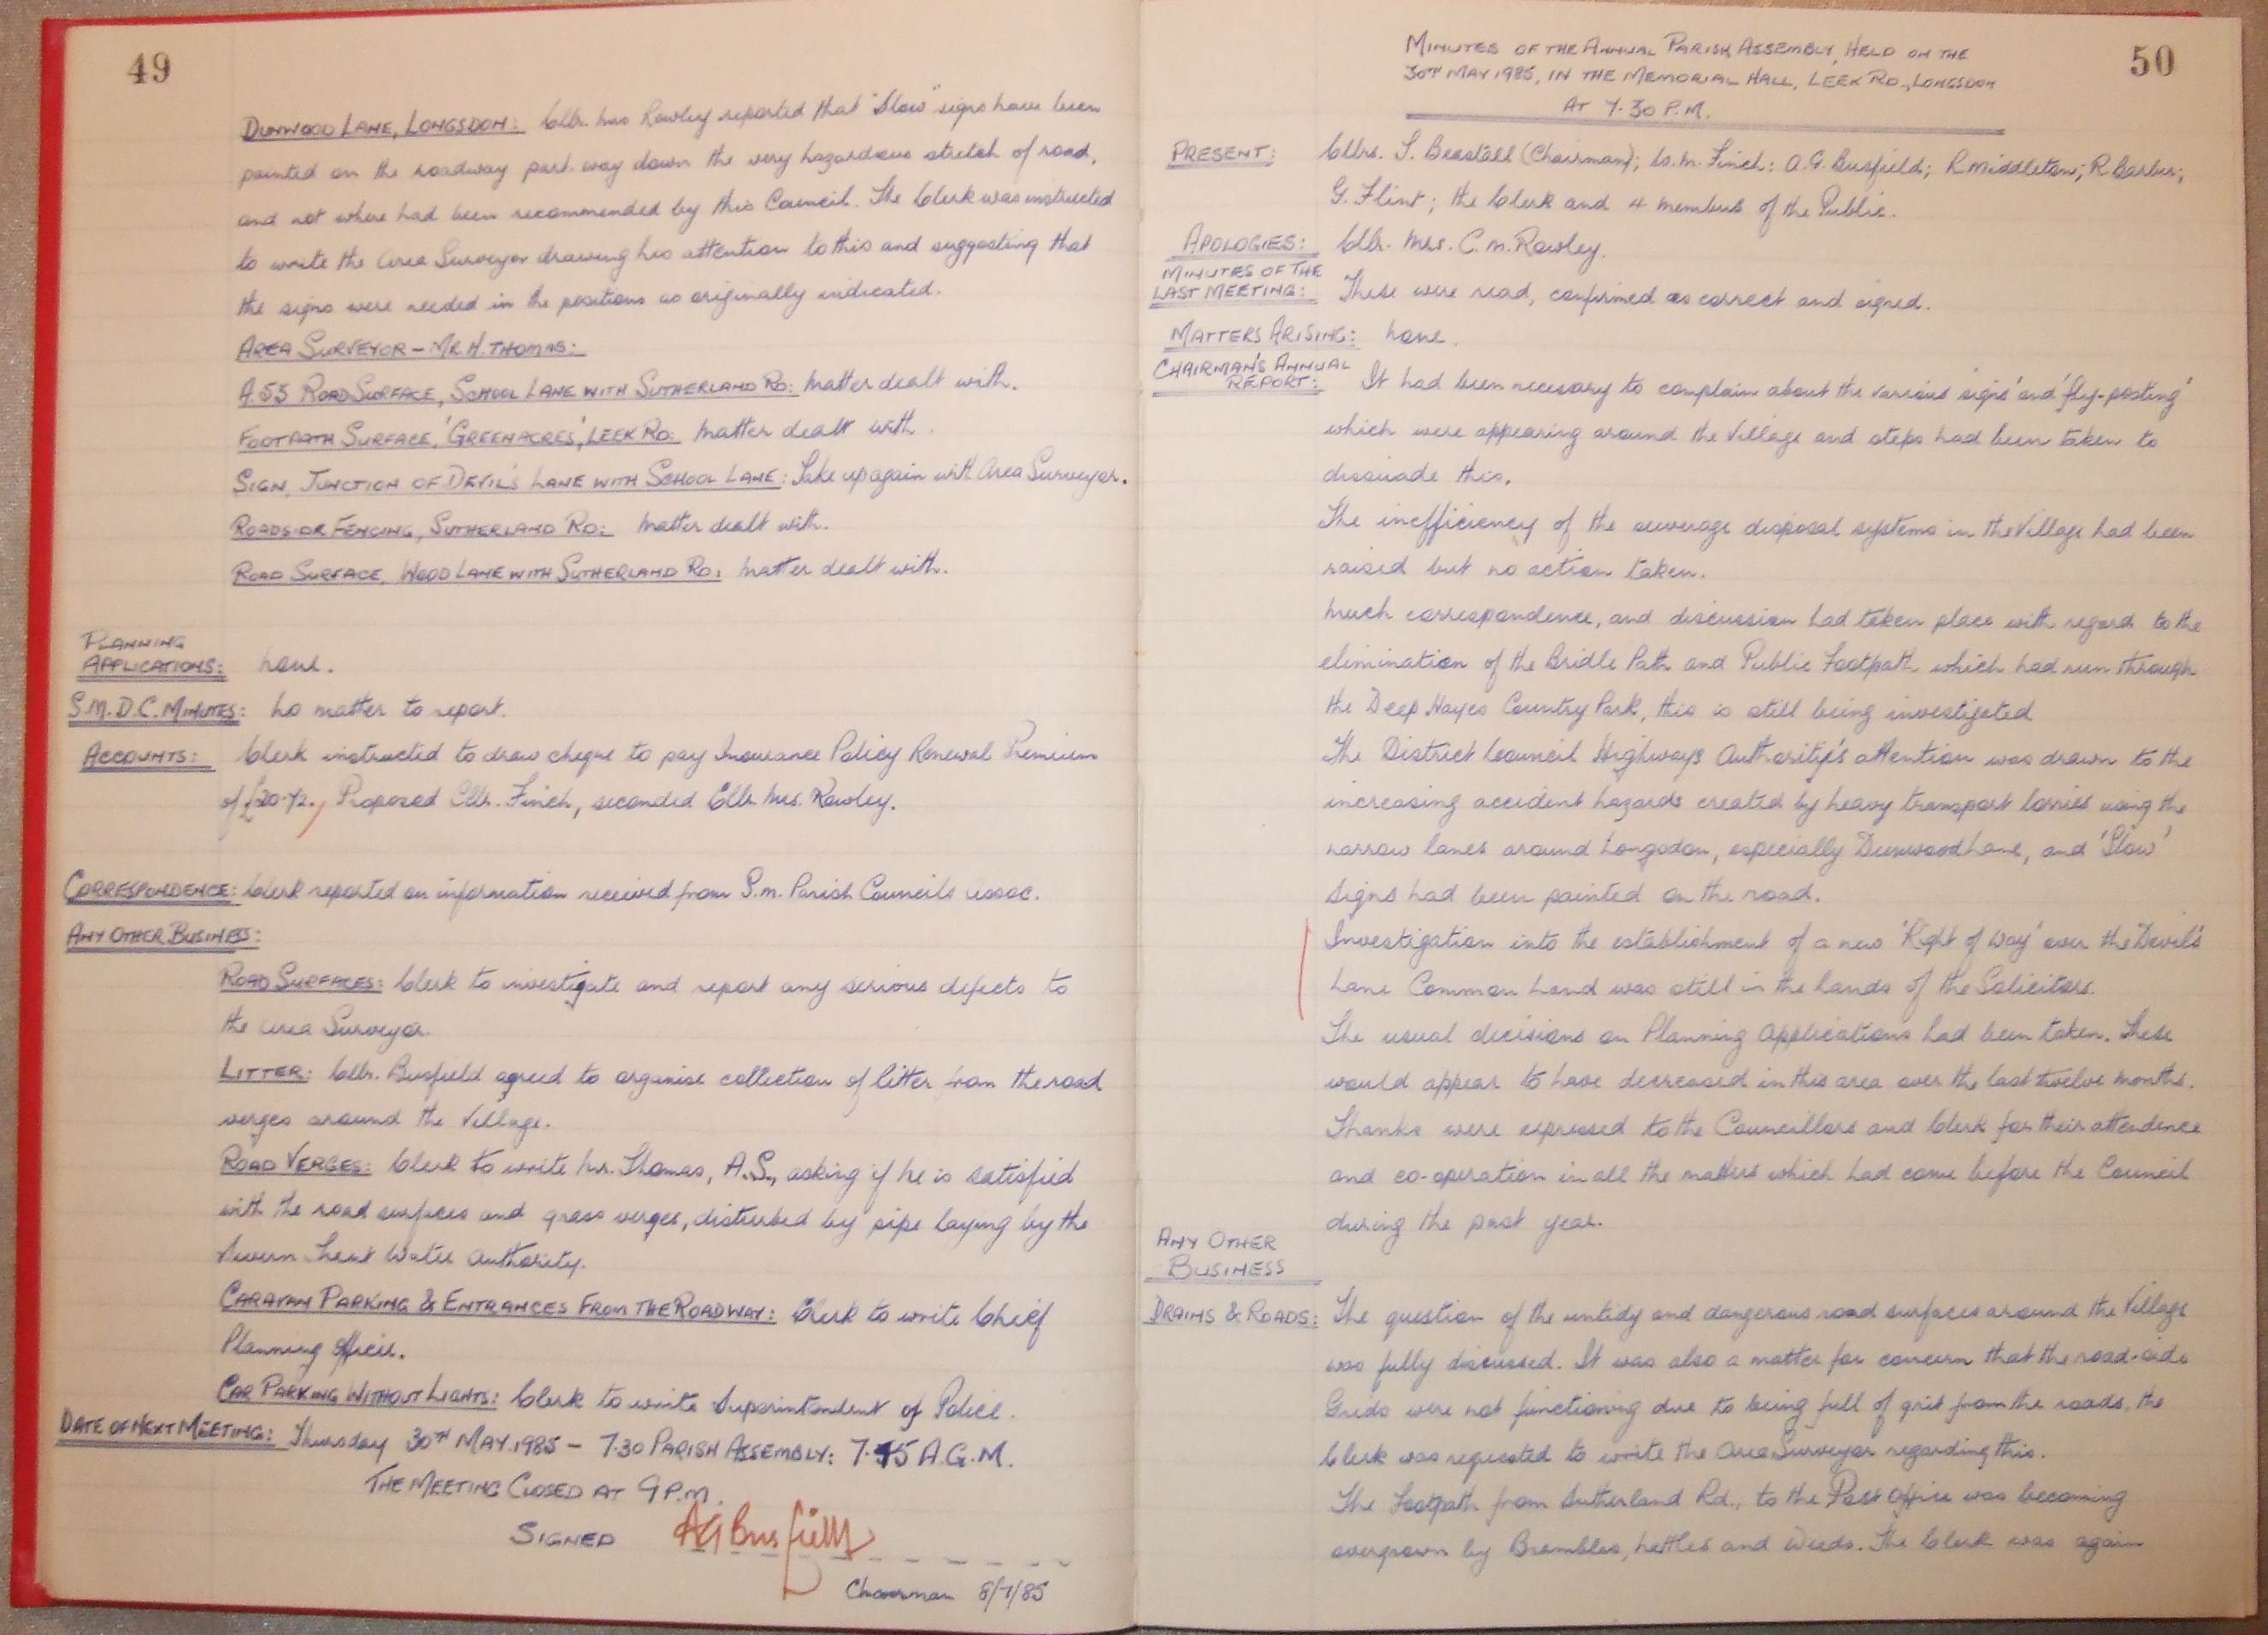 49
DUNWOOD LANE, LONGSDON: Cllr. Mrs Rowley reported that "Slow" signs have been
painted on the roadway part-way down the very hazardous stretch of road,
and not where had been recommended by this Council. The Clerk was instructed
to write the Area Surveyor drawing his attention to this and suggesting that
the signs were needed in the positions as originally indicated.
AREA SURVEYOR – MR. H. THOMAS:
A.53 ROAD SURFACE, SCHOOL LANE WITH SUTHERLAND RD: Matter dealt with.
FOOTPATH SURFACE, 'GREENACRES', LEEK RD: Matter dealt with.
SIGN, JUNCTION OF DEVIL'S LANE WITH SCHOOL LANE: Take up again with Area Surveyor.
ROADSIDE FENCING, SUTHERLAND RD: Matter dealt with.
ROAD SURFACE, WOOD LANE WITH SUTHERLAND RD: Matter dealt with.
PLANNING
APPLICATIONS: None.
S.M.D.C. MINUTES: No matter to report.
ACCOUNTS: Clerk instructed to draw cheque to pay Insurance Policy Renewal Premium
of £20.72, Proposed Cllr. Finch, seconded Cllr Mrs. Rowley.
CORRESPONDENCE: Clerk reported on information received from S.M. Parish Councils Assoc.
ANY OTHER BUSINESS:
ROAD SURFACES: Clerk to investigate and report any serious defects to
the Area Surveyor.
LITTER: Cllr. Busfield agreed to organise collection of litter from the road
verges around the Village.
ROAD VERGES: Clerk to write Mr. Thomas, A.S., asking if he is satisfied
with the road surfaces and grass verges, disturbed by pipe laying by the
Severn Trent Water Authority.
CARAVAN PARKING & ENTRANCES FROM THE ROADWAY: Clerk to write Chief
Planning Officer.
CAR PARKING WITHOUT LIGHTS: Clerk to write Superintendent of Police.
DATE OF NEXT MEETING: Thursday 30TH MAY 1985 – 7.30 PARISH ASSEMBLY: 7.45 A.G.M.
THE MEETING CLOSED AT 9 P.M.
SIGNED AG Busfield
Chairman 8/7/85
50
MINUTES OF THE ANNUAL PARISH ASSEMBLY, HELD ON THE
30TH MAY 1985, IN THE MEMORIAL HALL, LEEK RD., LONGSDON
AT 7.30 P.M.
PRESENT: Cllrs. S. Beastall (Chairman); W.M. Finch: A.G. Busfield; R Middleton; R Barber;
G. Flint; the Clerk and 4 members of the Public.
APOLOGIES: Cllr. Mrs. C.M. Rowley.
MINUTES OF THE
LAST MEETING: These were read, confirmed as correct and signed.
MATTERS ARISING: None.
CHAIRMAN'S ANNUAL
REPORT: It had been necessary to complain about the various 'signs' and 'fly-posting'
which were appearing around the Village and steps had been taken to
dissuade this.
The inefficiency of the sewerage disposal systems in the Village had been
raised but no action taken.
Much correspondence, and discussion had taken place with regard to the
elimination of the Bridle Path and Public Footpath which had run through
the Deep Hayes Country Park, this is still being investigated
The District Council Highways Authority's attention was drawn to the
increasing accident hazards created by heavy transport lorries using the
narrow lanes around Longsdon, especially Dunwood Lane, and 'Slow'
signs had been painted on the road.
Investigation into the establishment of a new 'Right of Way' over the Devil's
Lane Common Land was still in the hands of the Solicitors.
The usual decisions on Planning Applications had been taken. These
would appear to have decreased in this area over the last twelve months.
Thanks were expressed to the Councillors and Clerk for their attendence
and co-operation in all the matters which had come before the Council
during the past year.
ANY OTHER
BUSINESS
DRAINS & ROADS: The question of the untidy and dangerous road surfaces around the Village
was fully discussed. It was also a matter for concern that the road-side
Grids were not functioning due to being full of grit from the roads, the
Clerk was requested to write the Area Surveyor regarding this.
The Footpath from Sutherland Rd., to the Post Office was becoming
overgrown by Brambles, Nettles and Weeds. The Clerk was again